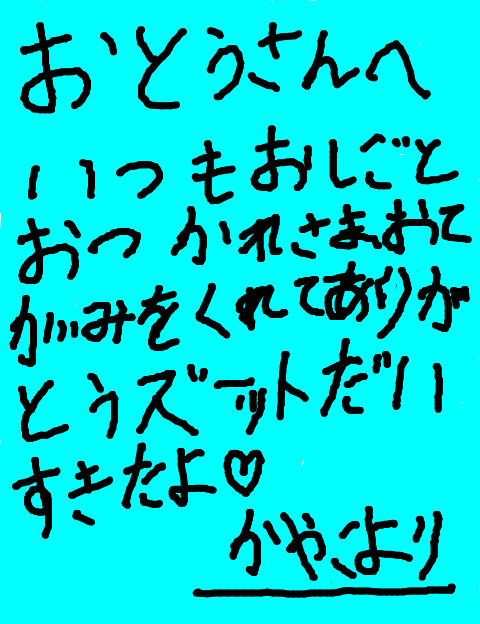 おとうさんへ
いつもおしごと
おつかれさま、おて
がみをくれてありが
とうズーットだい
すきだよ♡
かや、より